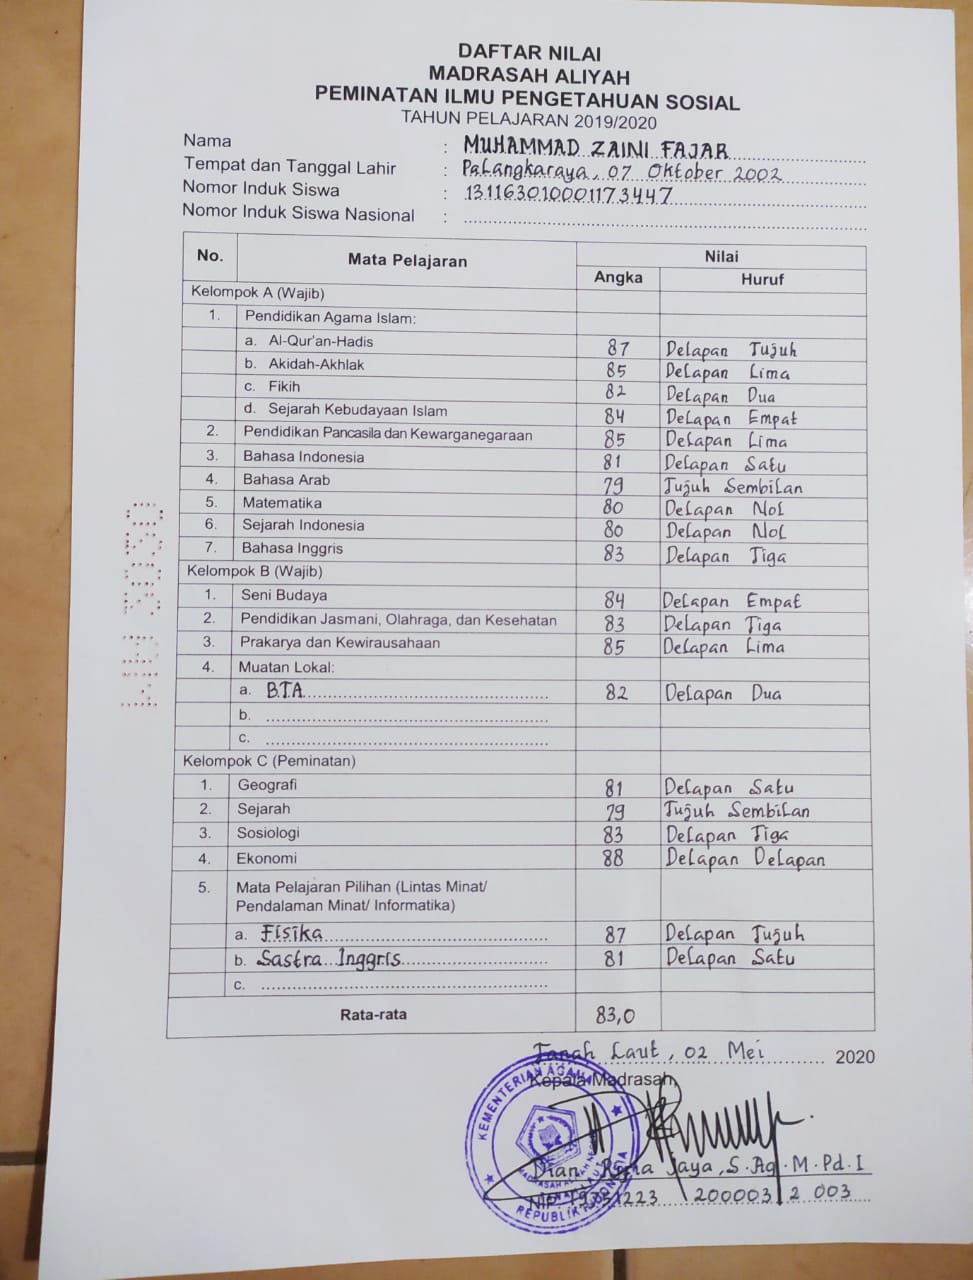 DAFTAR NILAI
MADRASAH ALIYAH
PEMINATAN ILMU PENGETAHUAN SOSIAL
TAHUN PELAJARAN 2019/2020
Nama : MUHAMMAD ZAINI FAJAR
Tempat dan Tanggal Lahir : Palangkaraya, 07 Oktober 2002
Nomor Induk Siswa : 131163010001173447
Nomor Induk Siswa Nasional :
No. Mata Pelajaran Nilai
Angka Huruf
Kelompok A (Wajib)
1. Pendidikan Agama Islam:
a. Al-Qur'an-Hadis 87 Delapan Tujuh
b. Akidah-Akhlak 85 Delapan Lima
c. Fikih 82 Delapan Dua
d. Sejarah Kebudayaan Islam 84 Delapan Empat
2. Pendidikan Pancasila dan Kewarganegaraan 85 Delapan Lima
3. Bahasa Indonesia 81 Delapan Satu
4. Bahasa Arab 79 Tujuh Sembilan
5. Matematika 80 Delapan Nol
6. Sejarah Indonesia 80 Delapan Nol
7. Bahasa Inggris 83 Delapan Tiga
Kelompok B (Wajib)
1. Seni Budaya 84 Delapan Empat
2. Pendidikan Jasmani, Olahraga, dan Kesehatan 83 Delapan Tiga
3. Prakarya dan Kewirausahaan 85 Delapan Lima
4. Muatan Lokal:
a. BTA 82 Delapan Dua
b.
c.
Kelompok C (Peminatan)
1. Geografi 81 Delapan Satu
2. Sejarah 79 Tujuh Sembilan
3. Sosiologi 83 Delapan Tiga
4. Ekonomi 88 Delapan Delapan
5. Mata Pelajaran Pilihan (Lintas Minat/
Pendalaman Minat/ Informatika)
a. Fisika 87 Delapan Tujuh
b. Sastra Inggris 81 Delapan Satu
c.
Rata-rata 83,0
Tanah Laut, 02 Mei 2020
Kepala Madrasah,
KEMENTERIAN AGAMA
REPUBLIK INDONESIA
Dian Jaya, S.Ag. M.Pd.I
NIP. 200003 2 003